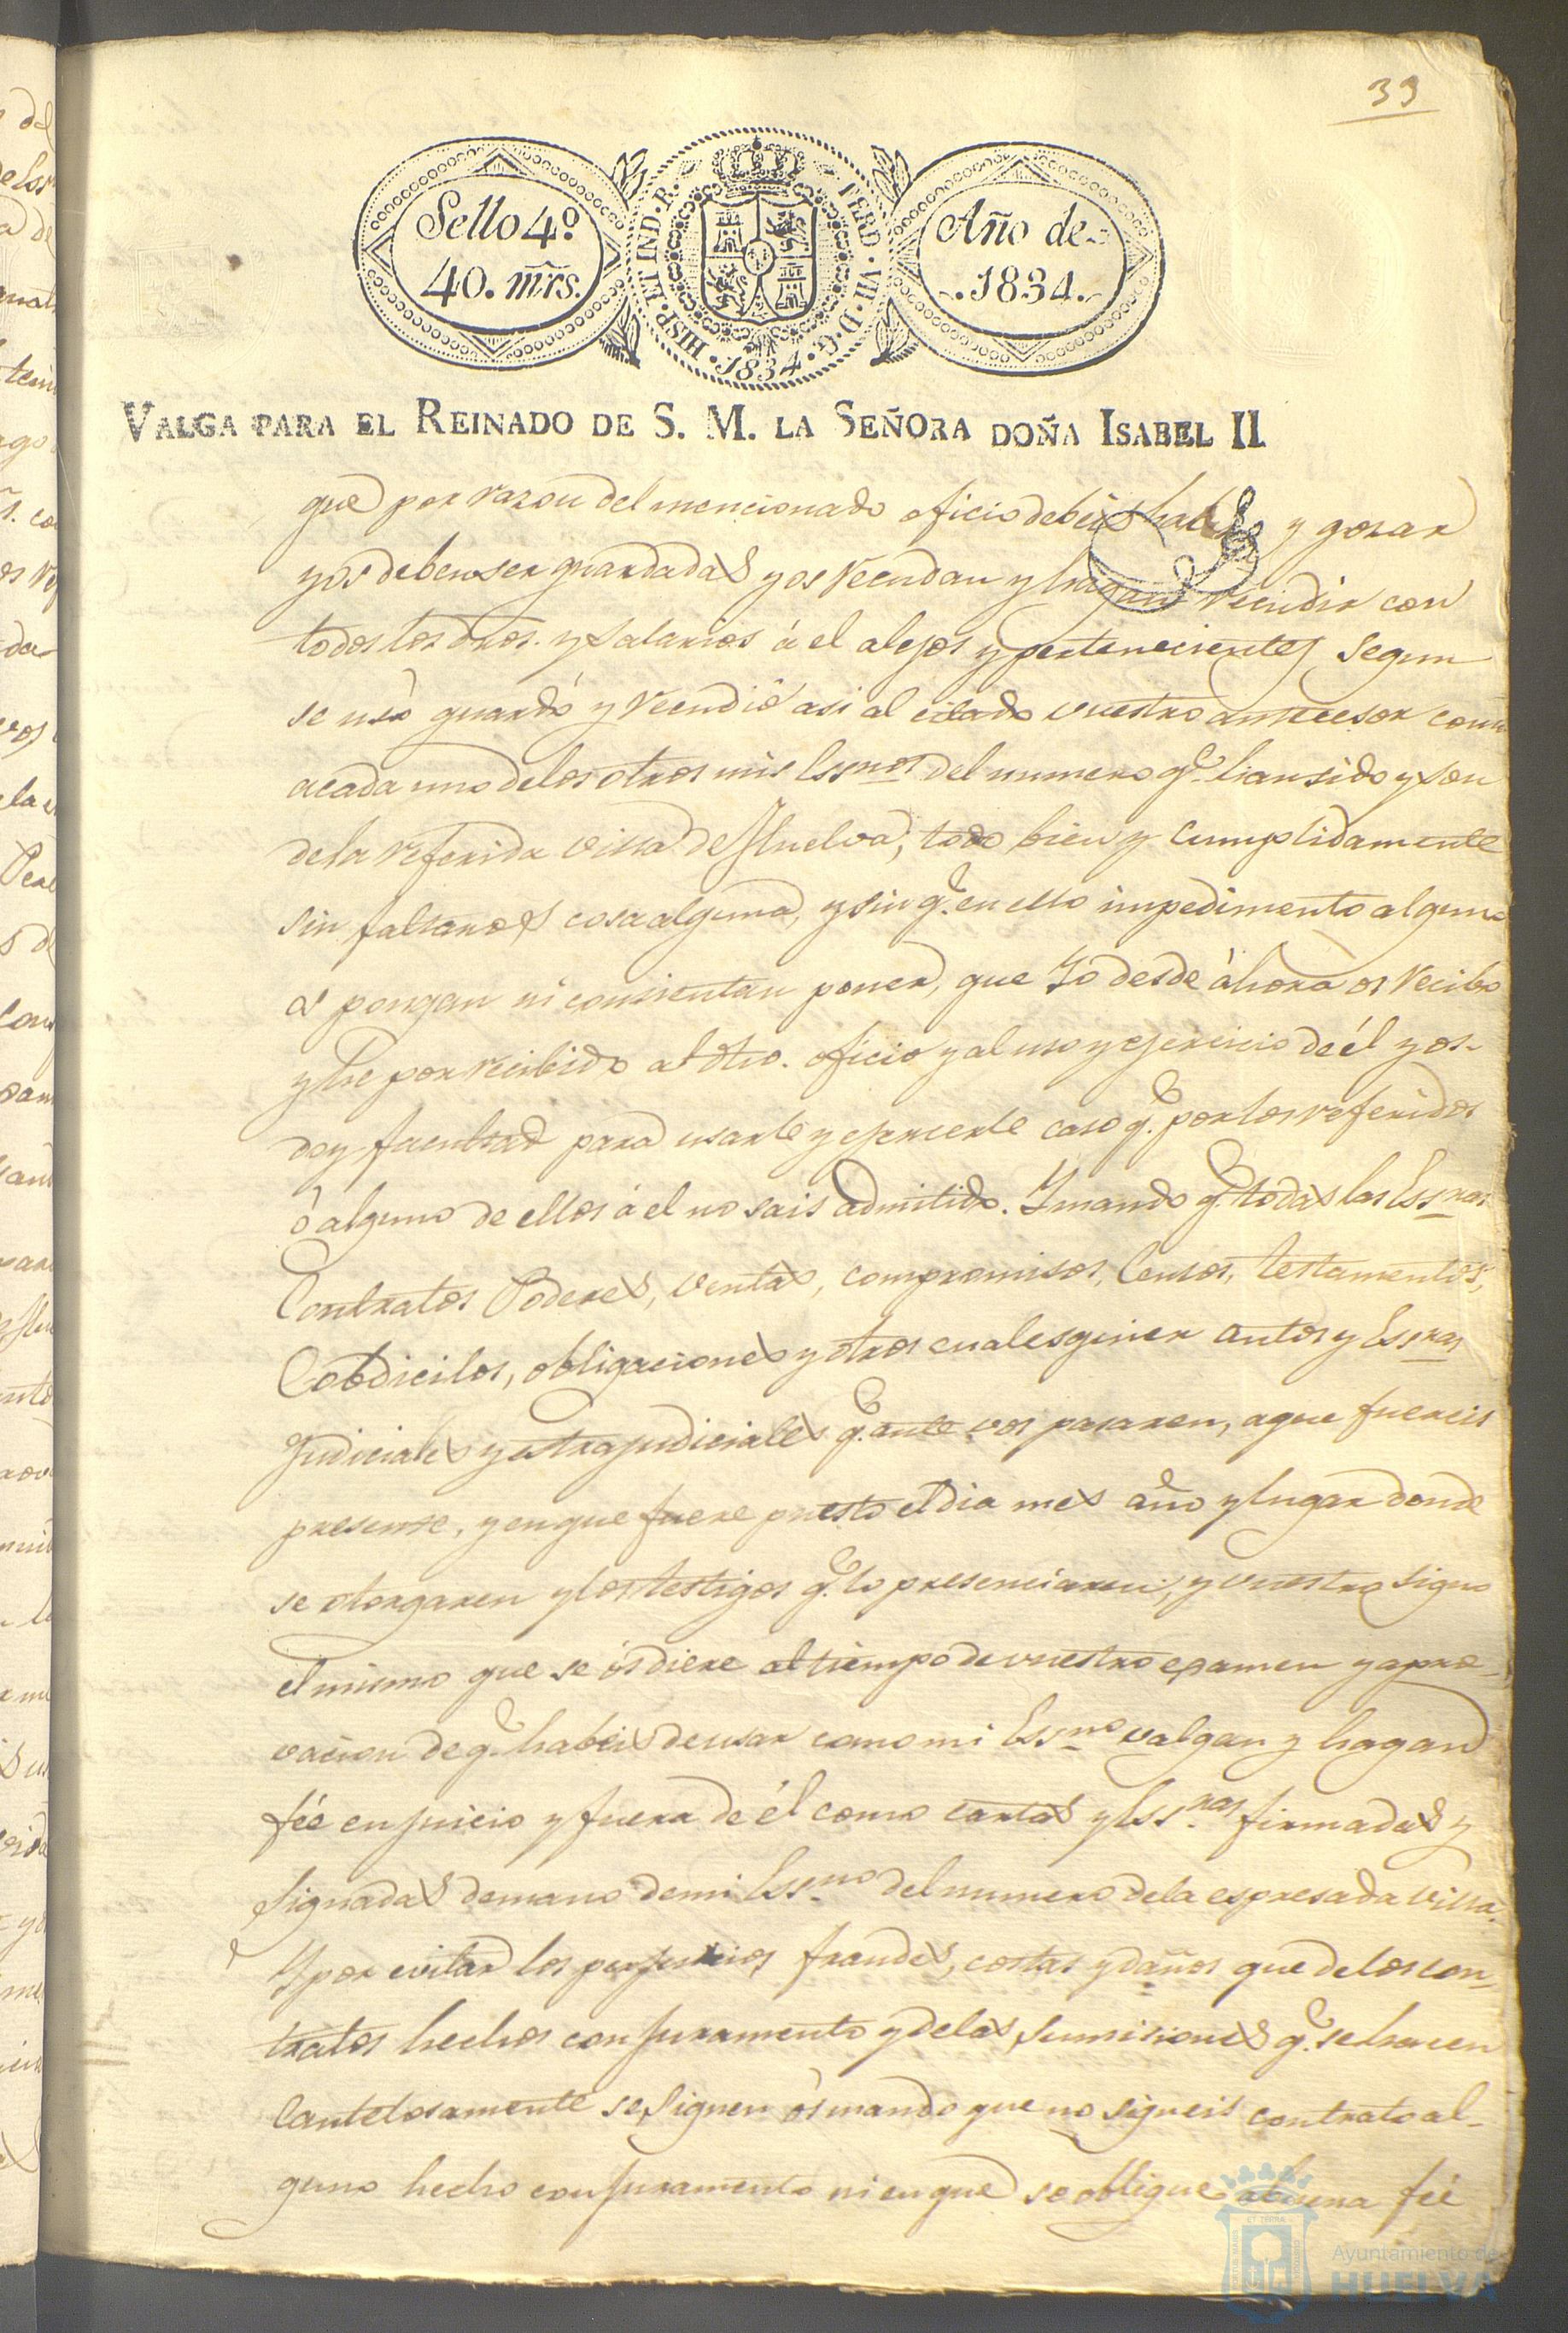 39
Sello 4º
40. mrs.
HISP. ET IND. R. FERD. VII. D. G. 1834.
Año de
1834.
VALGA PARA EL REINADO DE S. M. LA SEÑORA DOÑA ISABEL II
que por razon del mencionado oficio debeis haber y gozar
y os deben ser guardadas y os recudan y hagan recudir con
todos los dros. y salarios á el alejos y pertenecientes segun
se usó guardó y recudió asi al citado vuestro antecesor como
acada uno delos otros mis Essnos del numero q.e han sido y son
dela referida villa de Huelva, todo bien y cumplidamente
sin faltaros cosa alguna, y sin q.e en ello impedimento alguno
os pongan ni consientan poner, que Yo desde áhora os recibo
y he por recibido al dho. oficio y al uso y ejercicio de él y os
doy facultad para usarle y ejercerle caso q.e por los referidos
ó alguno de ellos á el no sais admitido. Y mando q.e todas las Essras
Contratos Poderes, ventas, compromisos, Censos, testamentos,
Cobdicilos, obligaciones y otros cualesquier autos y Essras
Judiciales y extrajudiciales q.e ante vos pasaren, a que fuereis
presente, y en que fuere puesto el dia mes año y lugar donde
se otorgaren y los testigos q.e lo presenciaren, y vuestro signo
el mismo que se ós diere al tiempo de vuestro examen y apro-
vacion de q.e habeis de usar como mi Essno valgan y hagan
fée en juicio y fuera de él como cartas y Essras firmadas y
signadas de mano de mi Essno del numero dela espresada villa.
Y por evitar los perjuicios fraudes, costas y daños que delos con-
tratos hechos con juramento y delas sumisiones q.e se hacen
Cautelosamente se siguen ós mando que no signeis contrato al-
guno hecho con juramento ni en que se obligue abuena fée
Ayuntamiento de
HUELVA